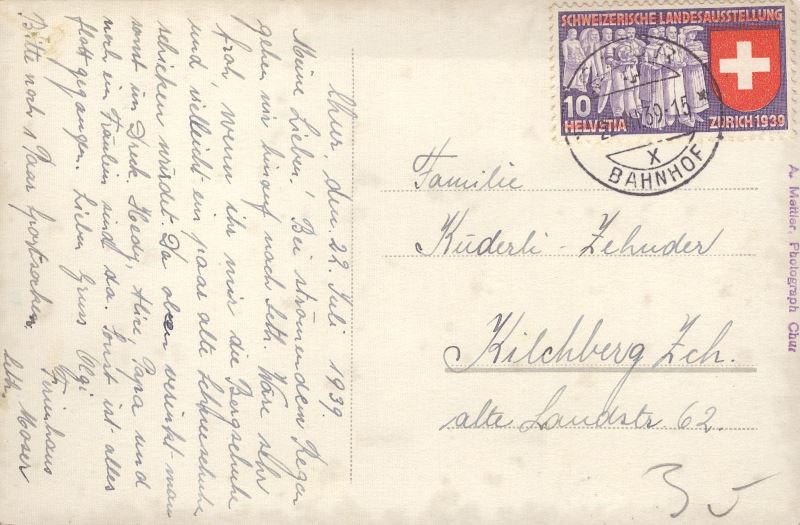 Chur, den 22. Juli 1939.
Meine Lieben! Bei strömendem Regen
gehen wir hinauf nach Sith. Wäre sehr
froh, wenn ihr mir die Bergschuhe
und vielleicht ein paar alte Schneeschuhe
schicken würdet. Da oben versinkt man
sonst im Dreck. Hedy, Alice, Papa und
noch ein Fräulein sind da. Sonst ist alles
flott gegangen. Lieben Gruss Olgi
Bitte noch 1 Paar Sportsocken.
Ferienhaus
Moser
SCHWEIZERISCHE LANDESAUSSTELLUNG
10
HELVETIA
ZÜRICH 1939
39-15
X
BAHNHOF
Familie
Kuderli-Zehnder
Kilchberg Zch.
alte Landstr 62.
35
A. Mettler, Photograph Chur